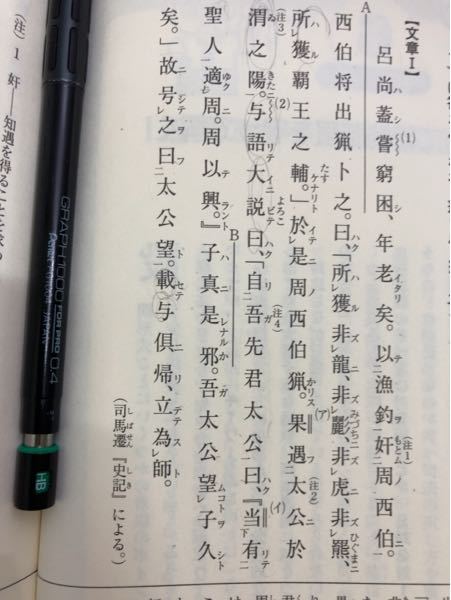 【文章Ⅰ】
呂尚蓋嘗窮困、年老矣。以漁釣奸周西伯。
西伯将出猟卜之。曰、「所獲非龍、非彲、非虎、非羆、
所獲覇王之輔。」於是周西伯猟。果遇太公於
渭之陽。与語大説曰、「自吾先君太公曰、『当有
聖人適周。周以興。』子真是邪。吾太公望子久
矣。」故号之曰太公望。載与俱帰、立為師。
(司馬遷『史記』による。)
(注) 1 奸――知遇を得ることを
GRAPH 1000 FOR PRO 0.4
HB